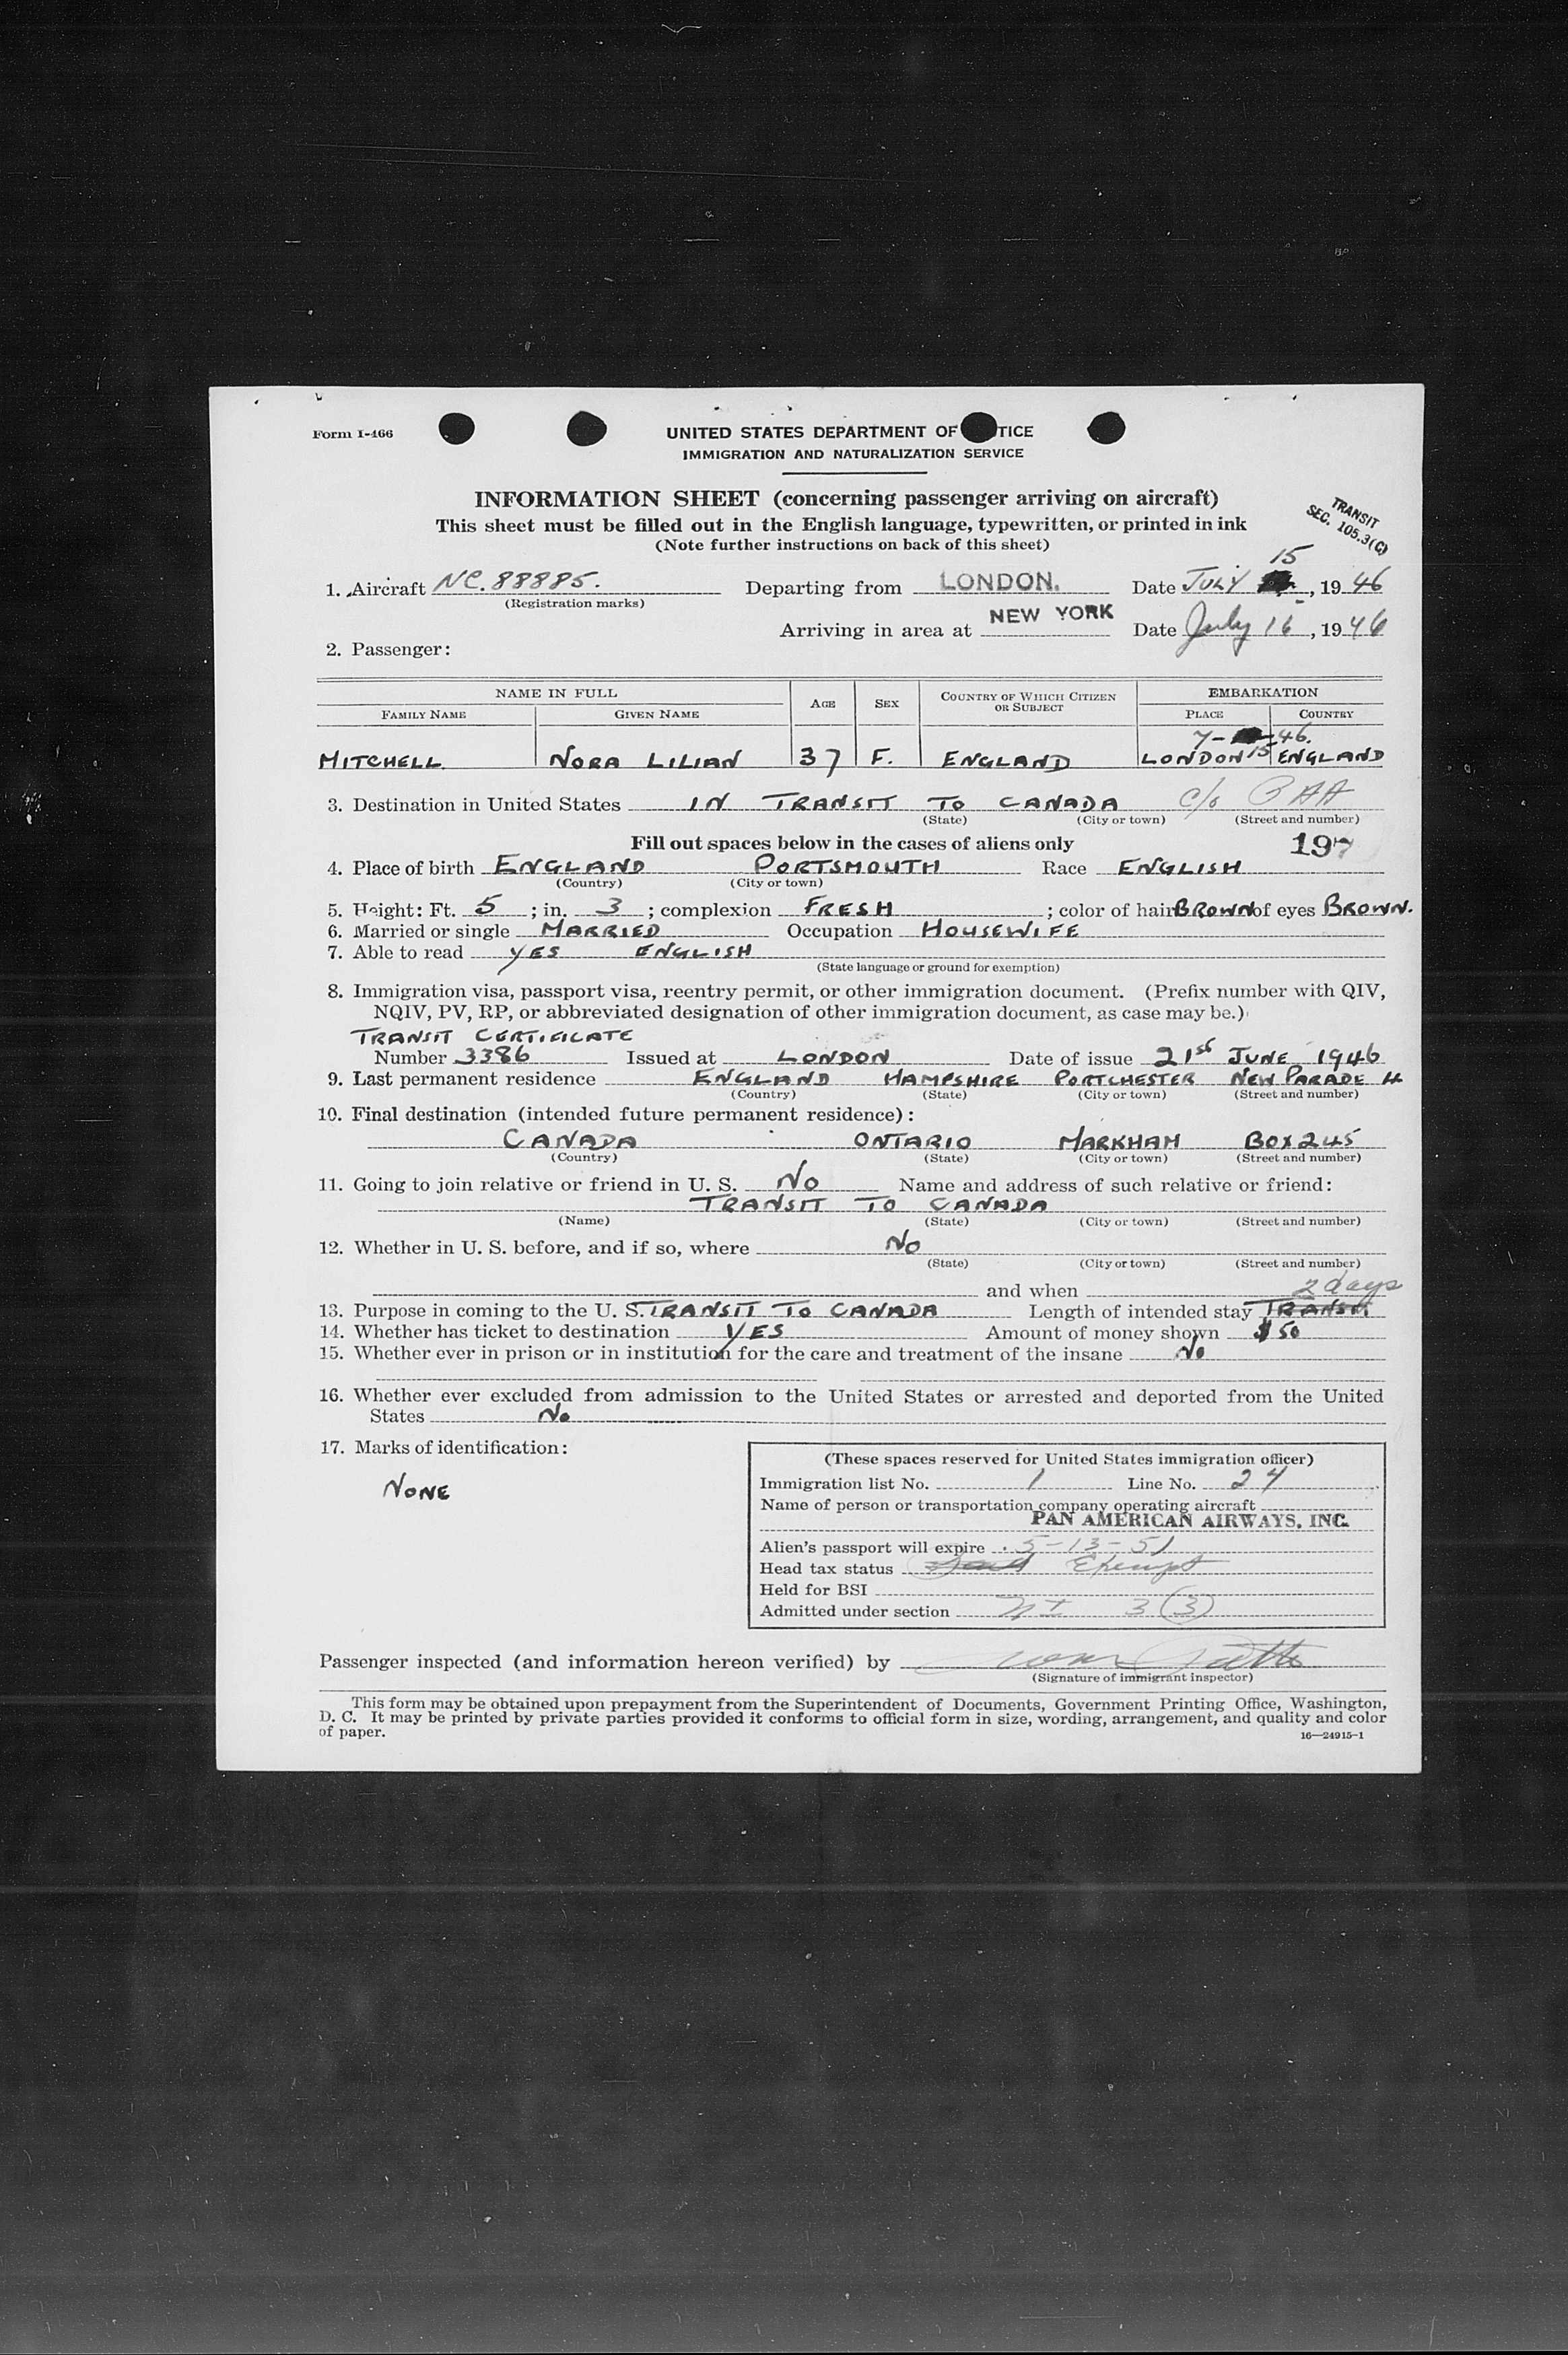 Form I-466
UNITED STATES DEPARTMENT OF TICE
IMMIGRATION AND NATURALIZATION SERVICE
INFORMATION SHEET (concerning passenger arriving on aircraft)
This sheet must be filled out in the English language, typewritten, or printed in ink
(Note further instructions on back of this sheet)
TRANSIT
SEC. 105.3(C)
15
1. Aircraft NC.88885. Departing from LONDON. Date JULY , 1946
(Registration marks)
Arriving in area at NEW YORK Date July 16, 1946
2. Passenger:
NAME IN FULL AGE SEX COUNTRY OF WHICH CITIZEN OR SUBJECT EMBARKATION
FAMILY NAME GIVEN NAME PLACE COUNTRY
7- -46.
15
MITCHELL NORA LILIAN 37 F. ENGLAND LONDON ENGLAND
3. Destination in United States IN TRANSIT TO CANADA c/o PAA
(State) (City or town) (Street and number)
Fill out spaces below in the cases of aliens only 197
4. Place of birth ENGLAND PORTSMOUTH Race ENGLISH
(Country) (City or town)
5. Height: Ft. 5 ; in. 3 ; complexion FRESH ; color of hair BROWN of eyes BROWN.
6. Married or single MARRIED Occupation HOUSEWIFE
7. Able to read YES ENGLISH
(State language or ground for exemption)
8. Immigration visa, passport visa, reentry permit, or other immigration document. (Prefix number with QIV,
NQIV, PV, RP, or abbreviated designation of other immigration document, as case may be.)
TRANSIT CERTIFICATE
Number 3386 Issued at LONDON Date of issue 21st JUNE 1946
9. Last permanent residence ENGLAND HAMPSHIRE PORTCHESTER NEW PARADE 4
(Country) (State) (City or town) (Street and number)
10. Final destination (intended future permanent residence):
CANADA ONTARIO MARKHAM BOX 245
(Country) (State) (City or town) (Street and number)
11. Going to join relative or friend in U. S. NO Name and address of such relative or friend:
TRANSIT TO CANADA
(Name) (State) (City or town) (Street and number)
12. Whether in U. S. before, and if so, where NO
(State) (City or town) (Street and number)
and when
2 days
13. Purpose in coming to the U. S. TRANSIT TO CANADA Length of intended stay TRANSIT
14. Whether has ticket to destination YES Amount of money shown $50
15. Whether ever in prison or in institution for the care and treatment of the insane No
16. Whether ever excluded from admission to the United States or arrested and deported from the United
States No
17. Marks of identification:
NONE
(These spaces reserved for United States immigration officer)
Immigration list No. 1 Line No. 24
Name of person or transportation company operating aircraft
PAN AMERICAN AIRWAYS, INC.
Alien's passport will expire 5-13-51
Head tax status Exempt
Held for BSI
Admitted under section NI 3 (3)
Passenger inspected (and information hereon verified) by
(Signature of immigrant inspector)
This form may be obtained upon prepayment from the Superintendent of Documents, Government Printing Office, Washington,
D. C. It may be printed by private parties provided it conforms to official form in size, wording, arrangement, and quality and color
of paper.
16—24915-1